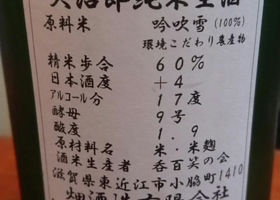 大治郎純米生酒
原料米 吟吹雪(100%)
環境こだわり農産物
精米歩合 60%
日本酒度 +4
アルコール分 17度
酵母 9号
酸度 1.9
原材料名 米・米麹
酒米生産者 呑百笑の会
滋賀県東近江市小脇町1410
畑酒造有限会社